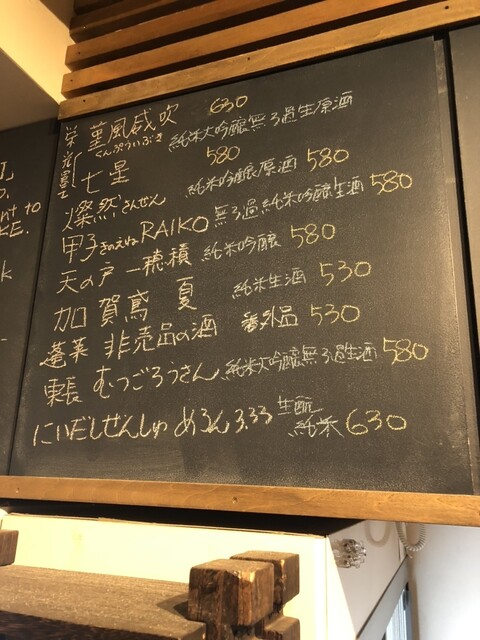 栄光 薫風威吹 630
くんぷういぶき 純米大吟醸無ろ過生原酒
七星 580
燦然 さんぜん 純米吟醸原酒 580
甲子 きのえね RAIKO 無ろ過純米吟醸生酒 580
天の戸 一穂積 純米吟醸 580
加賀鳶 夏 純米生酒 530
蓬莱 非売品の酒 番外品 530
東長 むつごろうさん 純米大吟醸無ろ過生酒 580
にいだしぜんしゅ めろん3.33 生酛 純米 630
nt to
KE.
k